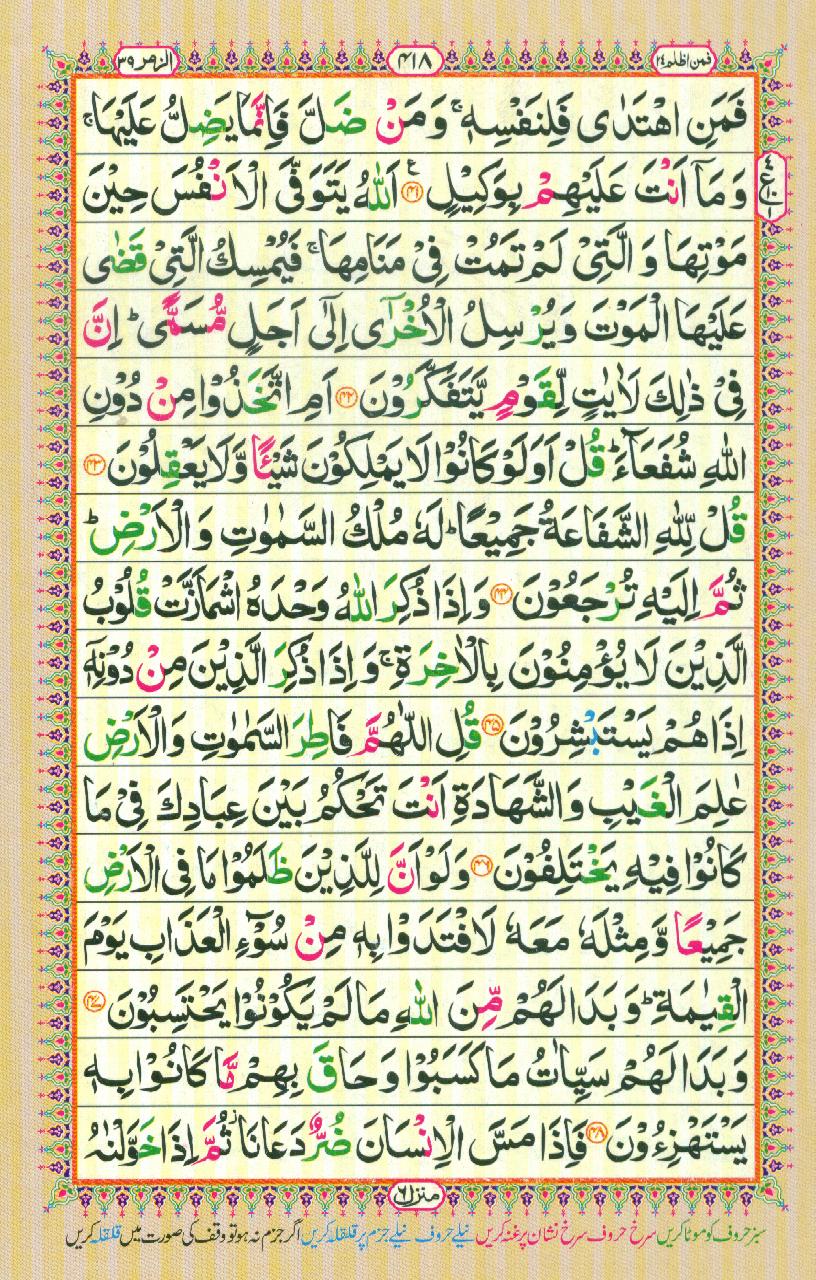 فمن اظلم ۲۴
۴۱۸
الزمر ۳۹
فَمَنِ اهْتَدٰى فَلِنَفْسِهٖ ۚ وَمَنْ ضَلَّ فَاِنَّمَا يَضِلُّ عَلَيْهَا ۚ
وَمَاۤ اَنْتَ عَلَيْهِمْ بِوَكِيْلٍ ﴿۴۱﴾ اَللّٰهُ يَتَوَفَّى الْاَنْفُسَ حِيْنَ
مَوْتِهَا وَالَّتِىْ لَمْ تَمُتْ فِىْ مَنَامِهَا ۚ فَيُمْسِكُ الَّتِىْ قَضٰى
عَلَيْهَا الْمَوْتَ وَيُرْسِلُ الْاُخْرٰۤى اِلٰۤى اَجَلٍ مُّسَمًّى ؕ اِنَّ
فِىْ ذٰلِكَ لَاٰيٰتٍ لِّقَوْمٍ يَّتَفَكَّرُوْنَ ﴿۴۲﴾ اَمِ اتَّخَذُوْا مِنْ دُوْنِ
اللّٰهِ شُفَعَآءَ ؕ قُلْ اَوَلَوْ كَانُوْا لَا يَمْلِكُوْنَ شَيْـًٔا وَّلَا يَعْقِلُوْنَ ﴿۴۳﴾
قُلْ لِّلّٰهِ الشَّفَاعَةُ جَمِيْعًا ؕ لَهٗ مُلْكُ السَّمٰوٰتِ وَالْاَرْضِ ؕ
ثُمَّ اِلَيْهِ تُرْجَعُوْنَ ﴿۴۴﴾ وَاِذَا ذُكِرَ اللّٰهُ وَحْدَهُ اشْمَاَزَّتْ قُلُوْبُ
الَّذِيْنَ لَا يُؤْمِنُوْنَ بِالْاٰخِرَةِ ۚ وَاِذَا ذُكِرَ الَّذِيْنَ مِنْ دُوْنِهٖۤ
اِذَا هُمْ يَسْتَبْشِرُوْنَ ﴿۴۵﴾ قُلِ اللّٰهُمَّ فَاطِرَ السَّمٰوٰتِ وَالْاَرْضِ
عٰلِمَ الْغَيْبِ وَالشَّهَادَةِ اَنْتَ تَحْكُمُ بَيْنَ عِبَادِكَ فِىْ مَا
كَانُوْا فِيْهِ يَخْتَلِفُوْنَ ﴿۴۶﴾ وَلَوْ اَنَّ لِلَّذِيْنَ ظَلَمُوْا مَا فِى الْاَرْضِ
جَمِيْعًا وَّمِثْلَهٗ مَعَهٗ لَافْتَدَوْا بِهٖ مِنْ سُوْٓءِ الْعَذَابِ يَوْمَ
الْقِيٰمَةِ ؕ وَبَدَا لَهُمْ مِّنَ اللّٰهِ مَا لَمْ يَكُوْنُوْا يَحْتَسِبُوْنَ ﴿۴۷﴾
وَبَدَا لَهُمْ سَيِّاٰتُ مَا كَسَبُوْا وَحَاقَ بِهِمْ مَّا كَانُوْا بِهٖ
يَسْتَهْزِءُوْنَ ﴿۴۸﴾ فَاِذَا مَسَّ الْاِنْسَانَ ضُرٌّ دَعَانَا ۫ ثُمَّ اِذَا خَوَّلْنٰهُ
منزل ۶
سبز حروف کو موٹا کریں سرخ حروف سرخ نشان پر غنہ کریں نیلے حروف نیلے جزم پر قلقلہ کریں اگر جزم نہ ہو تو وقف کی صورت میں قلقلہ کریں